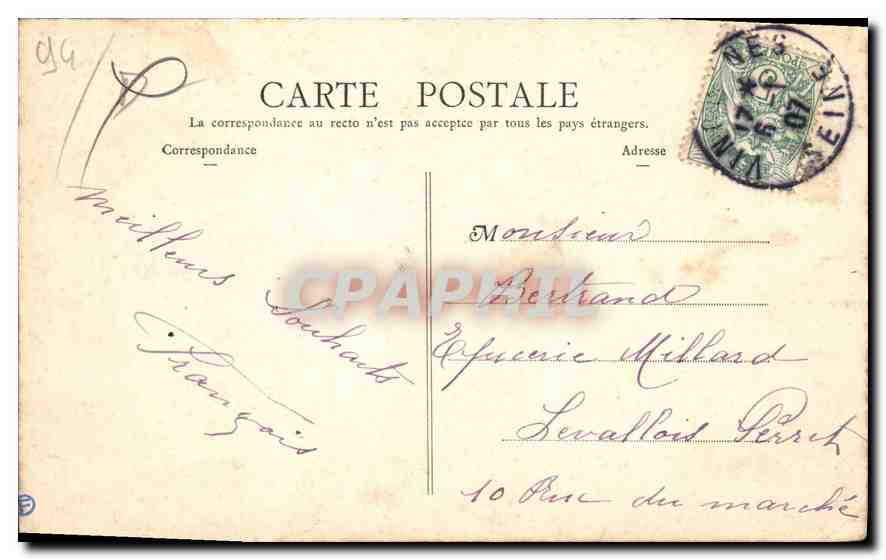 94
CARTE POSTALE
La correspondance au recto n'est pas acceptée par tous les pays étrangers.
Correspondance
Adresse
VINCENNES
17 *
6 - 1
07
SEINE
meilleurs Souhaits
François
Monsieur
Bertrand
Epicerie Millard
Levallois Perret
10 Rue du marché
CPAPHIL